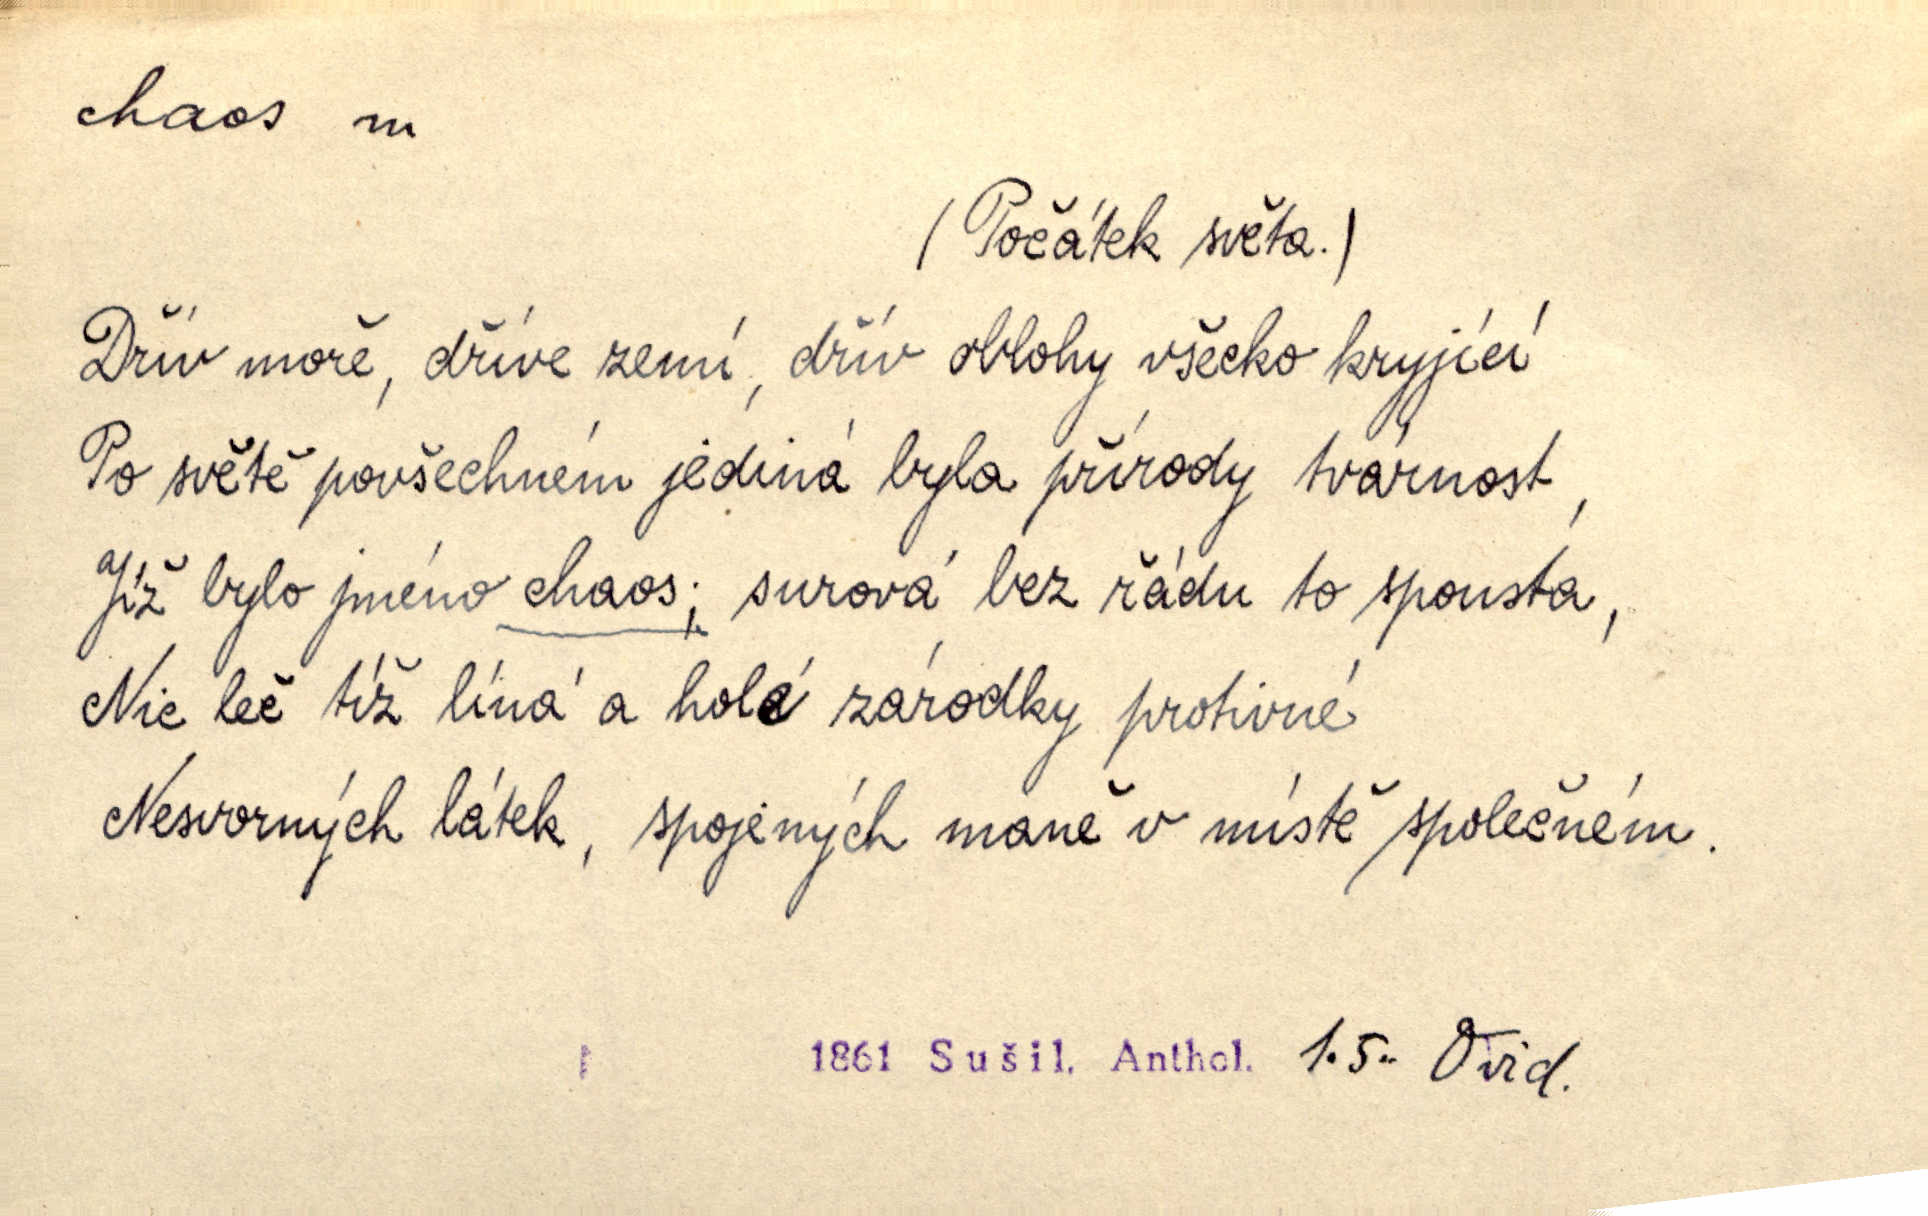 chaos m
(Počátek světa.)
Dřív moře, dříve zemí, dřív oblohy všecko kryjící
Po světě povšechném jediná byla přírody tvárnost,
Jíž bylo jméno chaos; surová bez řádu to spousta,
Nic leč tíž líná a holé zárodky protivné
Nesvorných látek, spojených maně v místě společném.
1861 Sušil. Anthol. 1.5. Ovid.